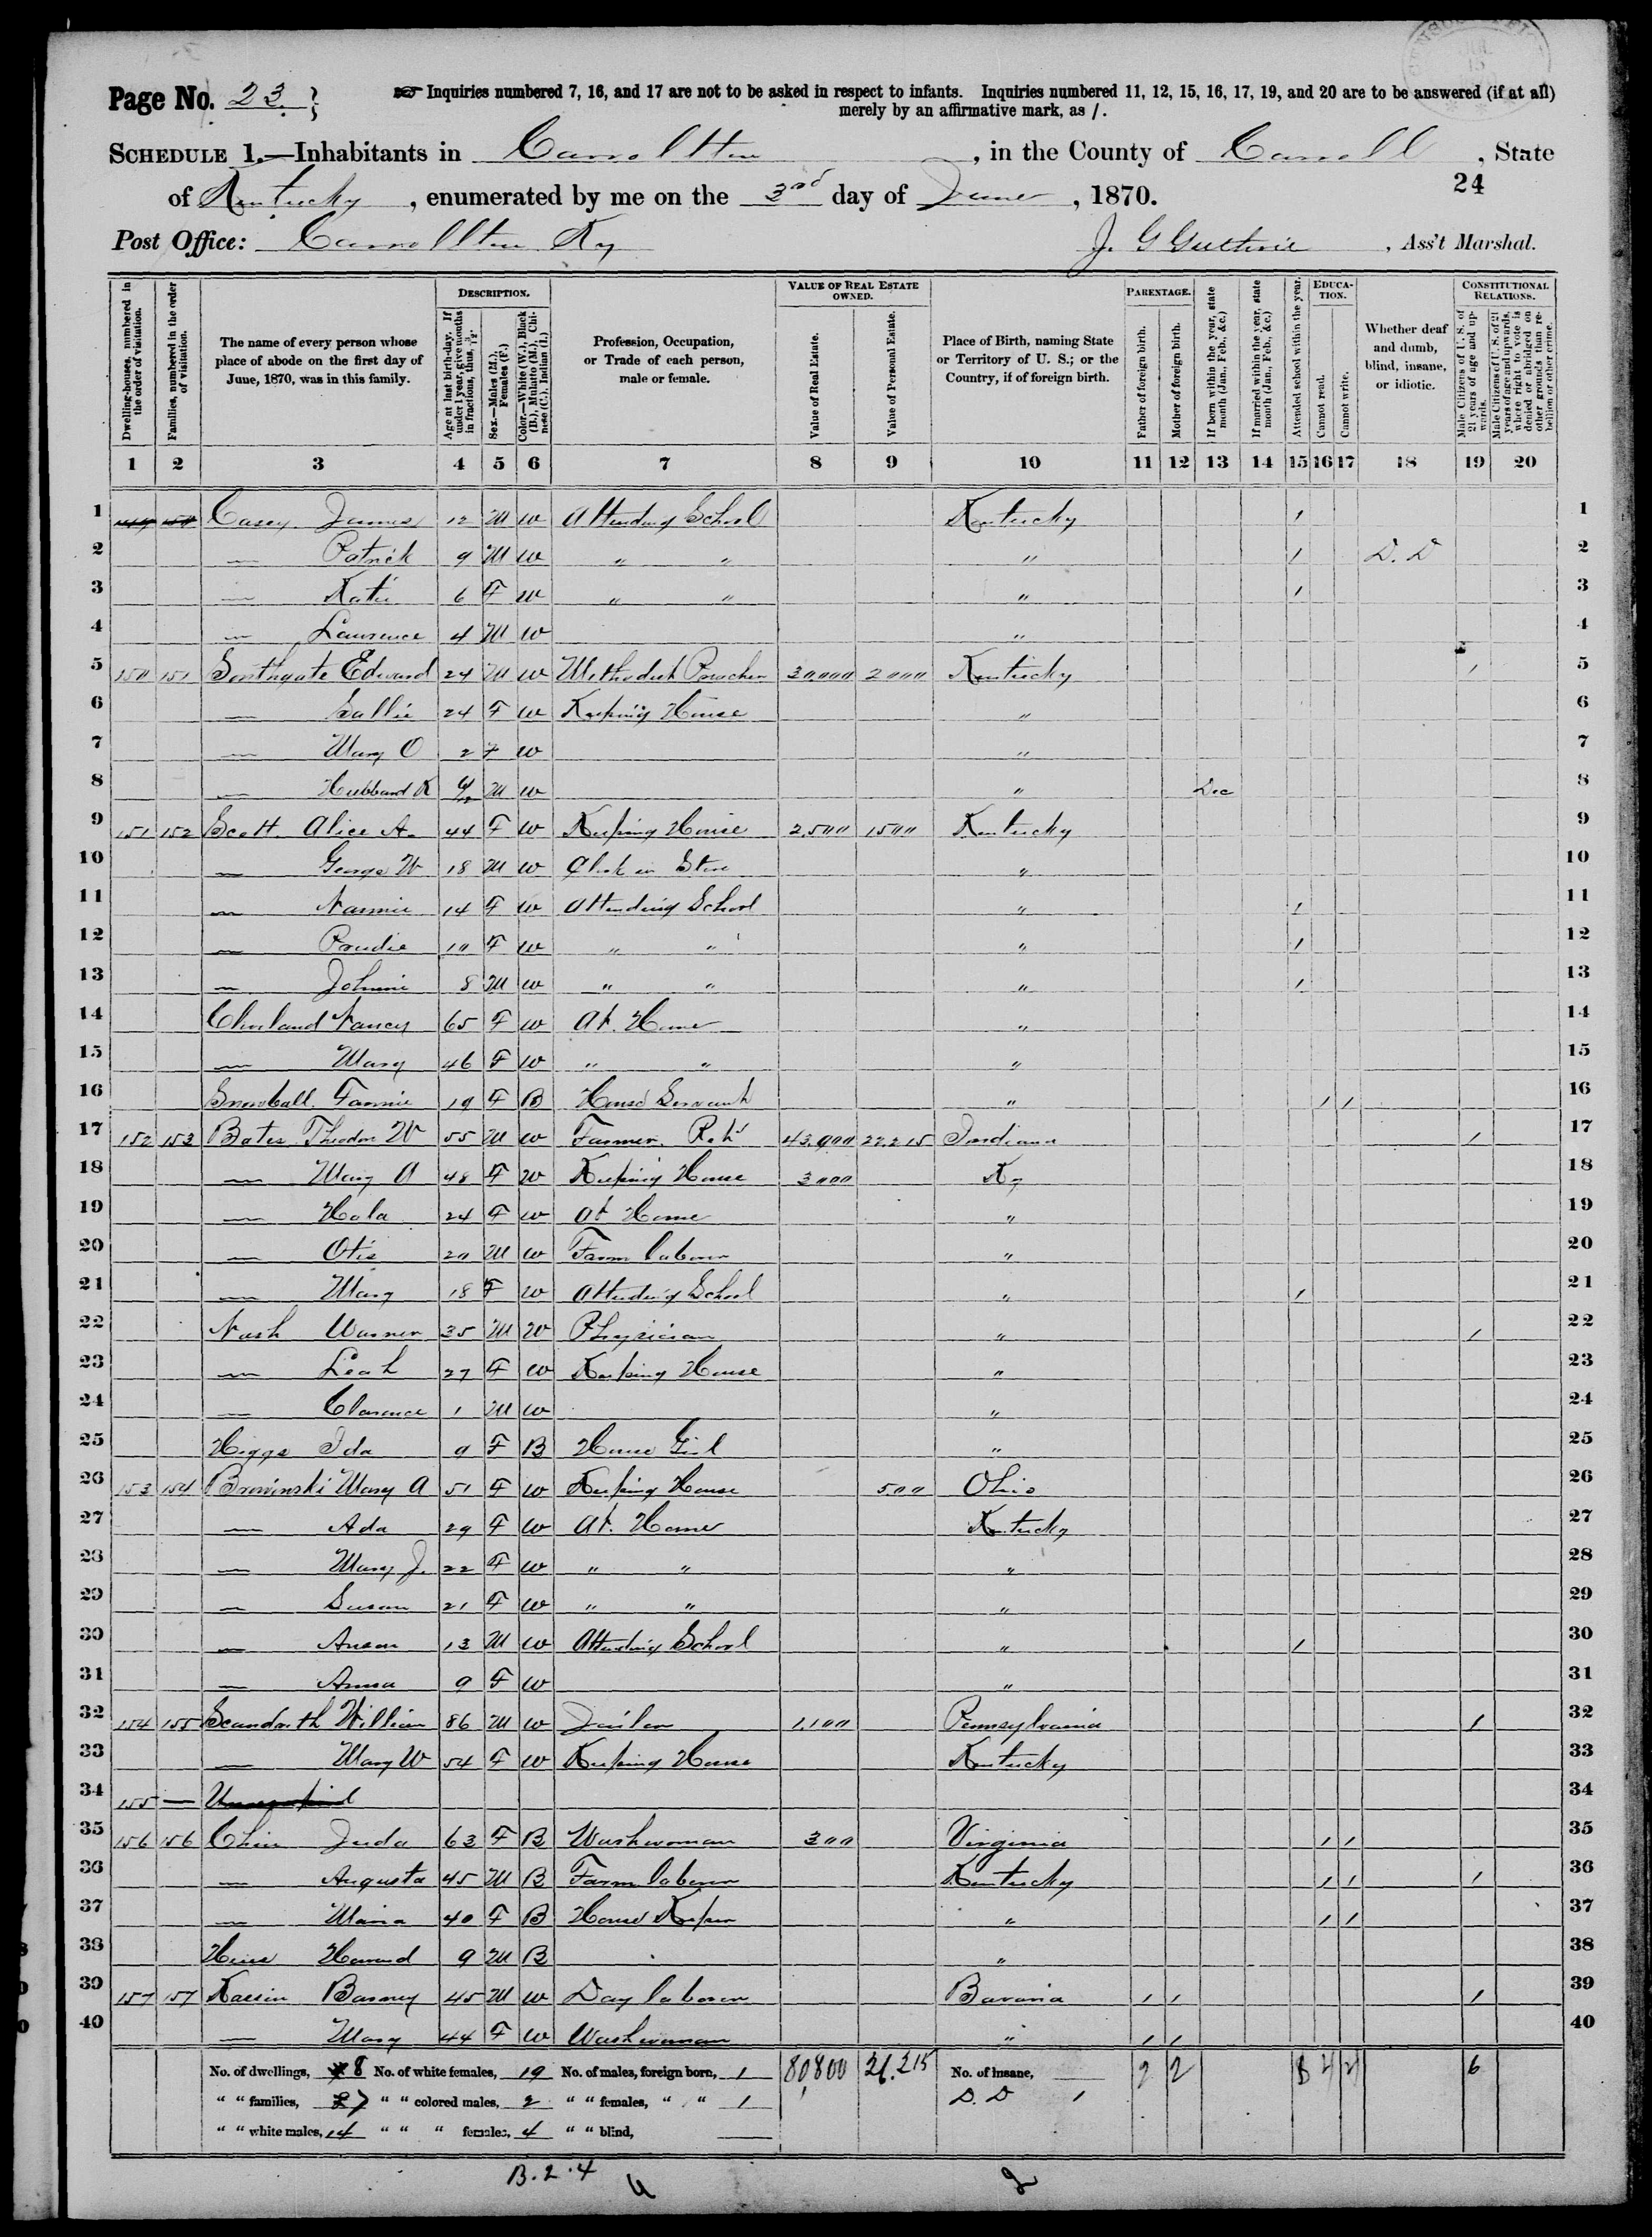 Page No. 23.
☞ Inquiries numbered 7, 16, and 17 are not to be asked in respect to infants. Inquiries numbered 11, 12, 15, 16, 17, 19, and 20 are to be answered (if at all)
merely by an affirmative mark, as /.
SCHEDULE 1.—Inhabitants in Carrollton, in the County of Carroll, State
of Kentucky, enumerated by me on the 3rd day of June, 1870.
24
Post Office: Carrollton Ky
J. G Guthrie, Ass't Marshal.
Dwelling-houses, numbered in the order of visitation.
Families, numbered in the order of visitation.
The name of every person whose place of abode on the first day of June, 1870, was in this family.
DESCRIPTION.
Age at last birth-day. If under 1 year, give months in fractions, thus, 3/12.
Sex.—Males (M.), Females (F.)
Color.—White (W.), Black (B.), Mulatto (M.), Chinese (C.), Indian (I.)
Profession, Occupation, or Trade of each person, male or female.
VALUE OF REAL ESTATE OWNED.
Value of Real Estate.
Value of Personal Estate.
Place of Birth, naming State or Territory of U. S.; or the Country, if of foreign birth.
PARENTAGE.
Father of foreign birth.
Mother of foreign birth.
If born within the year, state month (Jan., Feb., &c.)
If married within the year, state month (Jan., Feb., &c.)
Attended school within the year.
EDUCATION.
Cannot read.
Cannot write.
Whether deaf and dumb, blind, insane, or idiotic.
CONSTITUTIONAL RELATIONS.
Male Citizens of U. S. of 21 years of age and upwards.
Male Citizens of U. S. of 21 years of age and upwards, where right to vote is denied or abridged on other grounds than rebellion or other crime.
1 2 3 4 5 6 7 8 9 10 11 12 13 14 15 16 17 18 19 20
1 149 150 Casey James 12 M W Attending School Kentucky / 1
2 — Patrick 9 M W " " " / D. D 2
3 — Katie 6 F W " " " / 3
4 — Lawrence 4 M W " 4
5 150 151 Southgate Edward 24 M W Methodist Preacher 30000 2000 Kentucky / 5
6 — Sallie 24 F W Keeping House " 6
7 — Mary O 2 F W " 7
8 — Hubbard K M W " Dec 8
9 151 152 Scott Alice A. 44 F W Keeping House 2,500 1500 Kentucky 9
10 — George W 18 M W Clerk in Store " 10
11 — Nannie 14 F W Attending School " / 11
12 — 10 F W " " " / 12
13 — Johnnie 8 M W " " " / 13
14 Cleveland Nancy 65 F W At Home " 14
15 — Mary 46 F W " " " 15
16 Snowball Fannie 19 F B House Servant " / / 16
17 152 153 Bates Theodore W 55 M W Farmer Ret'd 43,900 22,215 Indiana / 17
18 — Mary A 48 F W Keeping House 3000 Ky 18
19 — Hola 24 F W At Home " 19
20 — Otis 20 M W Farm laborer " 20
21 — Mary 18 F W Attending School " / 21
22 Nash Warner 35 M W Physician " / 22
23 — Leah 27 F W Keeping House " 23
24 — Clarence 1 M W " 24
25 Higgs Ida 9 F B House Girl " 25
26 153 154 Browinski Mary A 51 F W Keeping House 500 Ohio 26
27 — Ada 29 F W At Home Kentucky 27
28 — Mary J. 22 F W " " " 28
29 — Susan 21 F W " " " 29
30 — Anson 13 M W Attending School " / 30
31 — Anna 9 F W " 31
32 154 155 William 86 M W Jailor 1,100 Pennsylvania / 32
33 — Mary W 54 F W Keeping House Kentucky 33
34 155 — Unoccupied 34
35 156 156 Chin Juda 63 F B Washwoman 300 Virginia / / 35
36 — Augusta 45 M B Farm laborer Kentucky / / / 36
37 — Maria 40 F B House Keeper " / / 37
38 Howard 9 M B " 38
39 157 157 Barney 45 M W Day laborer Bavaria / / / 39
40 — Mary 44 F W Washwoman " / / 40
No. of dwellings, 8 No. of white females, 19 No. of males, foreign born, 1 80,800 26,215 No. of insane, 2 2 8 4 4 6
" " families, 7 " " colored males, 2 " " females, " " 1 D. D 1
" " white males, 14 " " " females, 4 " " blind,
B. 2. 4